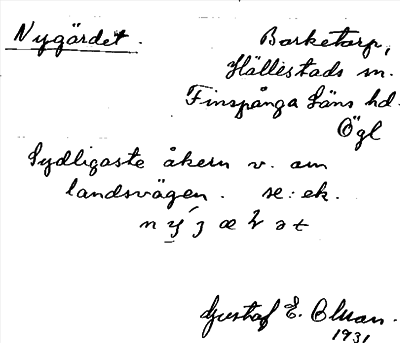 Nygärdet.
Borketorp,
Hällestads sn.
Finspånga läns hd.
Ögl
Sydligaste åkern v. om
landsvägen. se: ek.
Gustaf E. Olsson.
1931